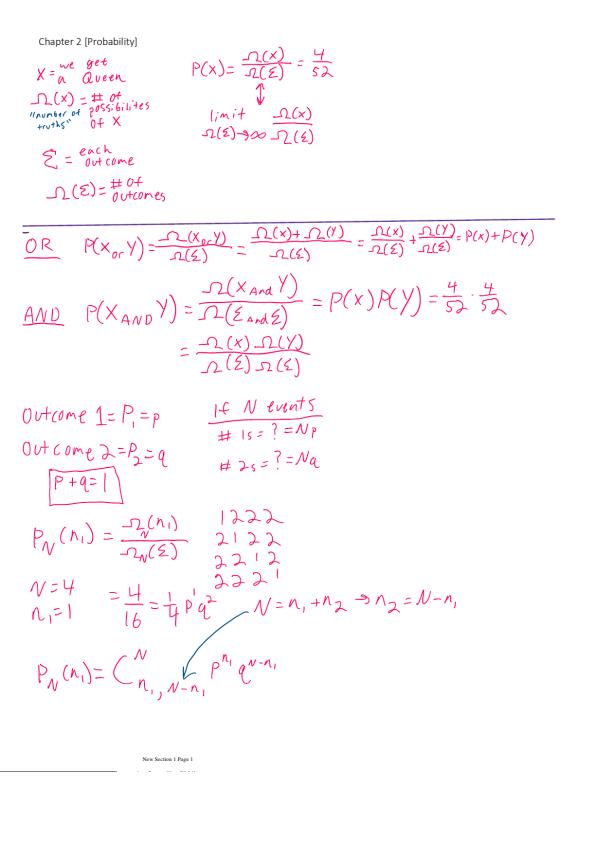 Chapter 2 [Probability]
X = we get a Queen
Ω(x) = # of possibilites of X
"number of truths"
Σ = each outcome
Ω(Σ) = # of outcomes
P(x) = Ω(x)/Ω(Σ) = 4/52
↕
limit Ω(Σ)→∞ Ω(x)/Ω(Σ)
OR P(X or Y) = Ω(X or Y)/Ω(Σ) = Ω(x) + Ω(Y)/Ω(Σ) = Ω(x)/Ω(Σ) + Ω(Y)/Ω(Σ) = P(x) + P(Y)
AND P(X AND Y) = Ω(X And Y)/Ω(Σ And Σ) = P(x) P(Y) = 4/52 · 4/52
= Ω(x) Ω(Y)/Ω(Σ) Ω(Σ)
Outcome 1 = P₁ = p
Outcome 2 = P₂ = q
P + q = 1
If N events
# 1s = ? = Np
# 2s = ? = Nq
P_N(n₁) = Ω_N(n₁)/Ω_N(Σ)
1 2 2 2
2 1 2 2
2 2 1 2
2 2 2 1
N = 4
n₁ = 1
= 4/16 = 1/4 p¹ q²
N = n₁ + n₂ → n₂ = N − n₁
P_N(n₁) = C^N_{n₁, N−n₁} p^{n₁} q^{N−n₁}
New Section 1 Page 1